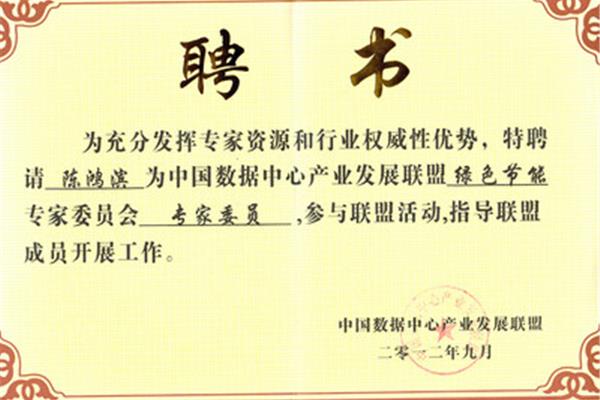 聘 书
为充分发挥专家资源和行业权威性优势，特聘
请 陈鸿滨 为中国数据中心产业发展联盟 绿色节能
专家委员会 专家委员 ,参与联盟活动,指导联盟
成员开展工作。
中国数据中心产业发展联盟
二零一二年九月